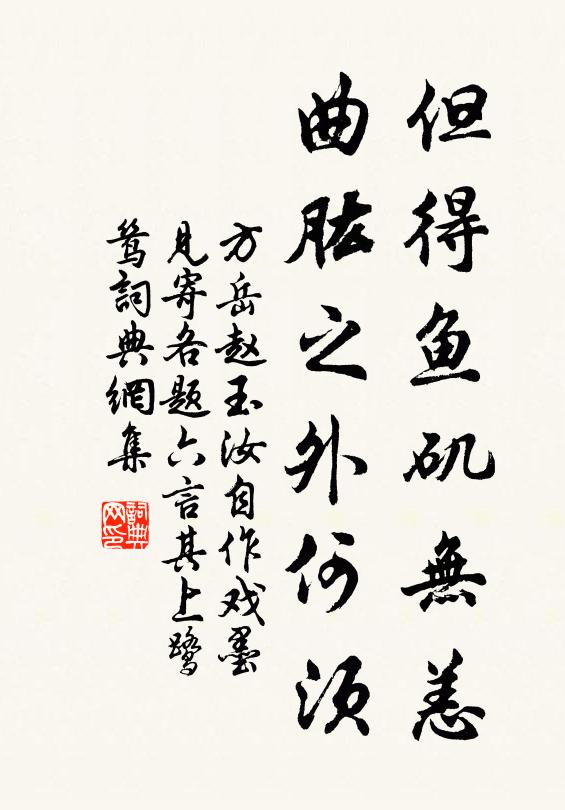 但得鱼矶無恙
曲肱之外何须
方岳赵玉汝自作戏墨
見寄各题六言其上鹭
鸶詞典網集
詞典
网印